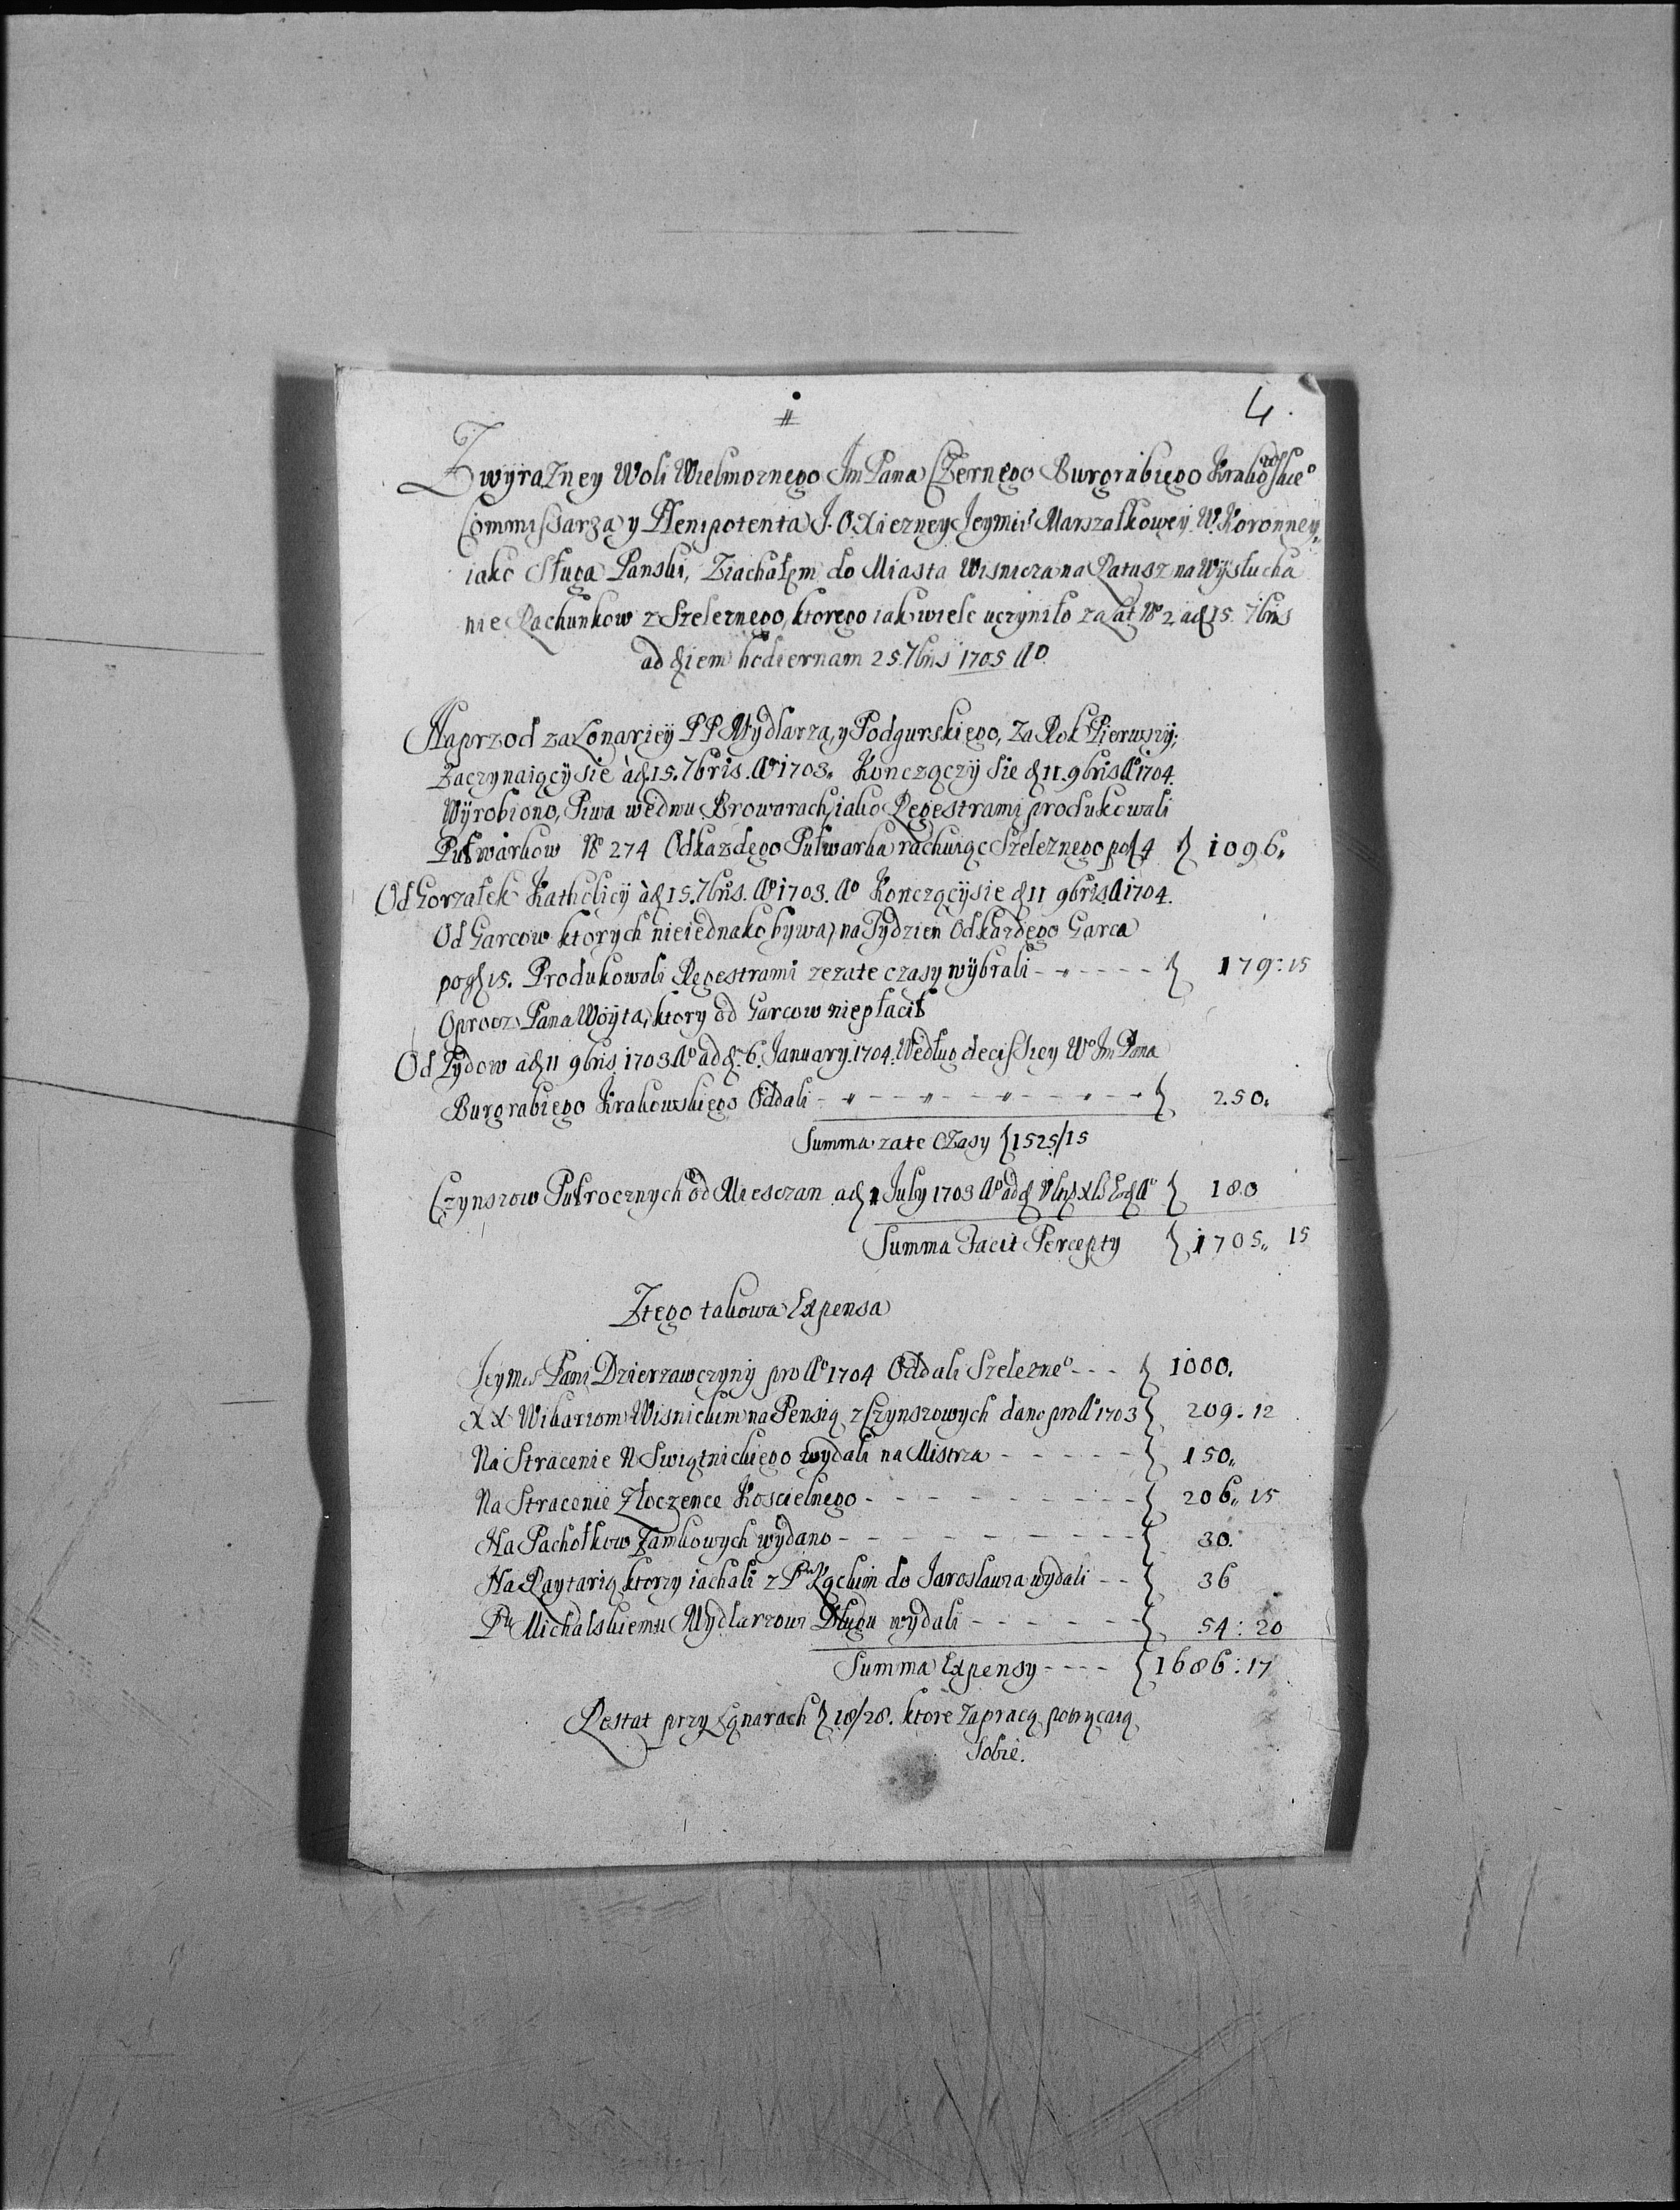 4.
Z wyrazney Woli Wielmoznego Jm Pana Czernego Burgrabiego Krakowskieº
Commissarza y Plenipotenta J. O. Xiezney Jeymci Marszałkowey W. Koronney,
iako Sługa Panski, Ziachałem do Miasta Wisnicza na Ratusz na Wysłucha
nie Rachunkow z Szeleznego, ktorego iak wiele uczyniło za Lat Nº 2 a d 15. 7bris
ad diem hodiernam 25. 7bris 1705 Aº.
Naprzod za Lonariey PP Mydlarza, y Podgurskiego, Za Rok Pierwszy;
Zaczynaiącÿ sie à d. 15. 7bris. Aº 1703. Konczączÿ sie d 11. 9bris Aº 1704.
Wÿrobiono, Piwa we dwu Browarach, iako Regestrami produkowali
Pułwarkow Nº 274 Od kazdego Pułwarka rachuiąc Szeleznego po f 4 } 1096.
Od Gorzałek Katholicÿ à d 15. 7bris. Aº 1703. Aº Konczącÿ sie d 11 9bris A 1704.
Od Garcow ktorych nieiednako bywa, na Tydzien Od kazdego Garca
po g 15. Produkowali Regestrami ze za te czasy wÿbrali - - - - - - } 179: 15
Oprocz Pana Wöyta, ktory od Garcow niepłacił
Od Zydow a d 11 9bris 1703 Aº ad d. 6. January. 1704. Według decissiey Wº Jm Pana
Burgrabiego Krakowskiego Oddali - - - - - - - - - } 250.
Summa za te Czasy } 1525/15
Czynszow Pułrocznych od Miesczan a d 1 July 1703 Aº ad d } 180
Summa Facit Percepty } 1705,, 15
Z tego takowa Expensa
Jeymci Pani Dzierzawczyny pro Aº 1704 Oddali Szelezneº - - - } 1000.
XX Wikariom Wisnickim na Pensią z Czynszowych dano pro Aº 1703 } 209. 12
Na Stracenie N Swiątnickiego wydali na Mistrza - - - - - } 150,,
Na Stracenie Złoczence Koscielnego - - - - - - - - - } 206,, 15
Na Pachołkow Zamkowych wydano - - - - - - - - - } 30.
Na Raytarią ktorzy iachali z Pm Łąckim do Jarosławia wydali - - } 36
Pu Michalskiemu Mydlarzowi Długu wydali - - - - - - - } 54: 20
Summa Expensy - - - - } 1686: 17
Restat przy Lonarach } 18/28. ktore za pracą potrycaią
Sobie.